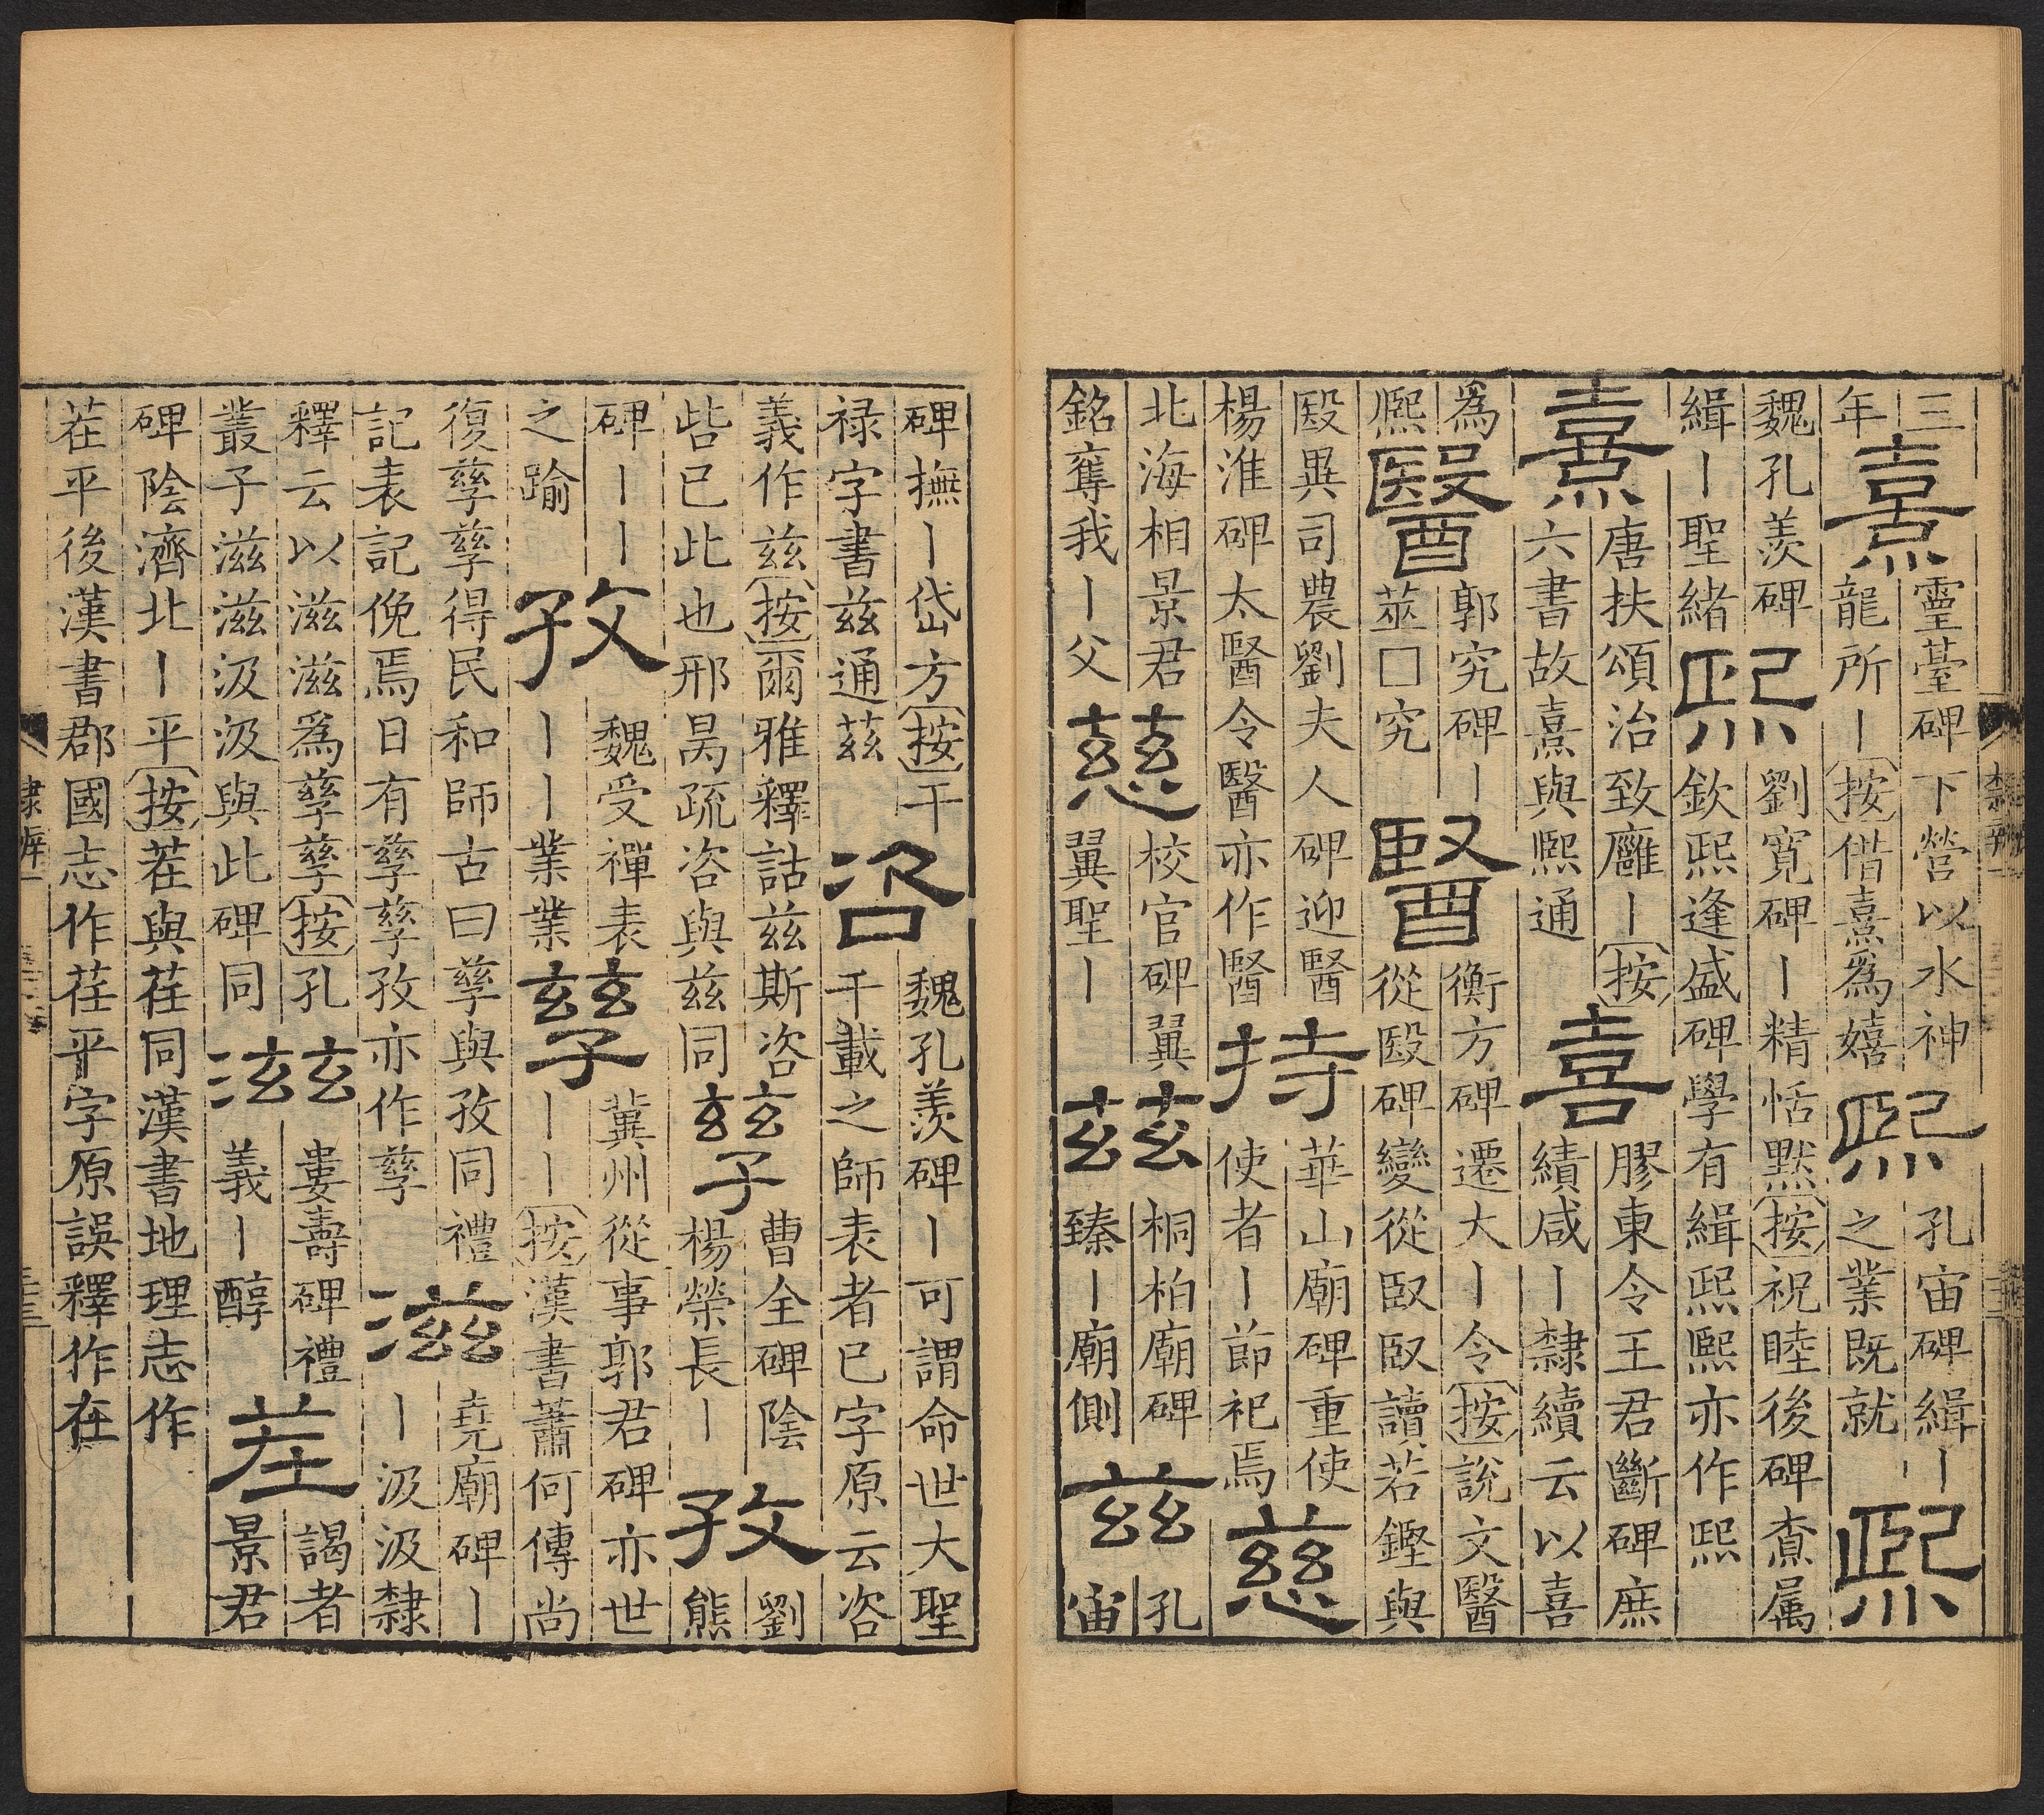 三
年
熹
靈臺碑下營以水神
龍所丨按借熹爲嬉
熙
孔宙碑緝丨
之業既就
熙
魏孔羨碑
緝丨聖緒
熙
劉寬碑丨精恬默按祝睦後碑亝属
欽熙逢盛碑學有緝熙熙亦作熙
熹
唐扶頌治致廱丨按
六書故熹與熙通
喜
膠東令王君斷碑庶
績咸丨隸續云以喜
爲
熙
醫
郭究碑丨
莁□究
醫
衡方碑遷大丨令按說文醫
從殹碑變從臤臤讀若鏗與
殹異司農劉夫人碑迎醫
楊淮碑太醫令醫亦作醫
持
華山廟碑重使
使者丨節祀焉
慈
北海相景君
銘奪我丨父
慈
校官碑翼
翼聖丨
茲
桐柏廟碑
臻丨廟側
茲
孔
宙
碑撫丨岱方按干
禄字書兹通茲
咨
魏孔羨碑丨可謂命世大聖
千載之師表者已字原云咨
義作兹按爾雅釋詁兹斯咨
呰已此也邢昺疏咨與兹同
孳
曹全碑陰
楊榮長丨
孜
劉
熊
碑丨丨
之踰
孜
魏受禪表
丨丨業業
孳
冀州從事郭君碑亦世
丨丨按漢書蕭何傳尚
復孳孳得民和師古曰孳與孜同禮
記表記俛焉日有孳孳孜亦作孳
滋
堯廟碑丨
丨汲汲隸
釋云以滋滋爲孳孳按孔
叢子滋滋汲汲與此碑同
滋
婁壽碑禮
義丨醇
茬
謁者
景君
碑陰濟北丨平按茬與荏同漢書地理志作
茬平後漢書郡國志作荏平字原誤釋作在
隸辨一